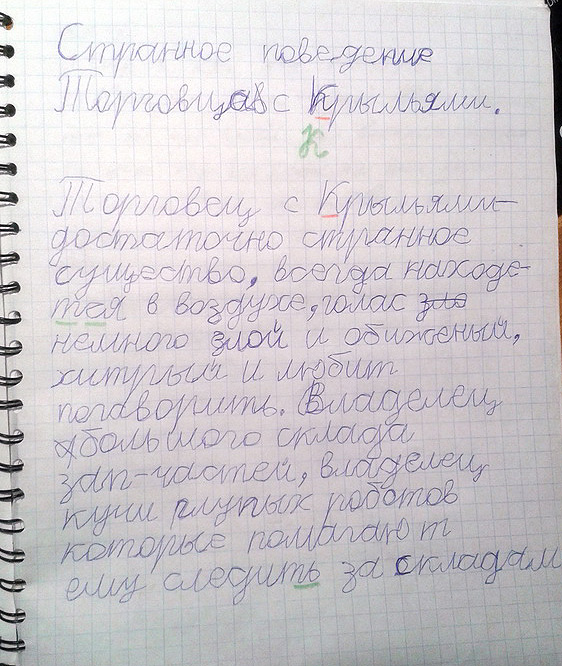 Странное поведение
Торговцав с Крыльями.
К
Торговец с Крыльями-
достаточно странное
существо, всегда находе-
тся в воздухе, голас зло
немного злой и обиженый,
хитрый и любит
поговорить. Владелец
большого склада
зап-частей, владелец
кучи глупых роботов
которые помагают
ему следить за складам